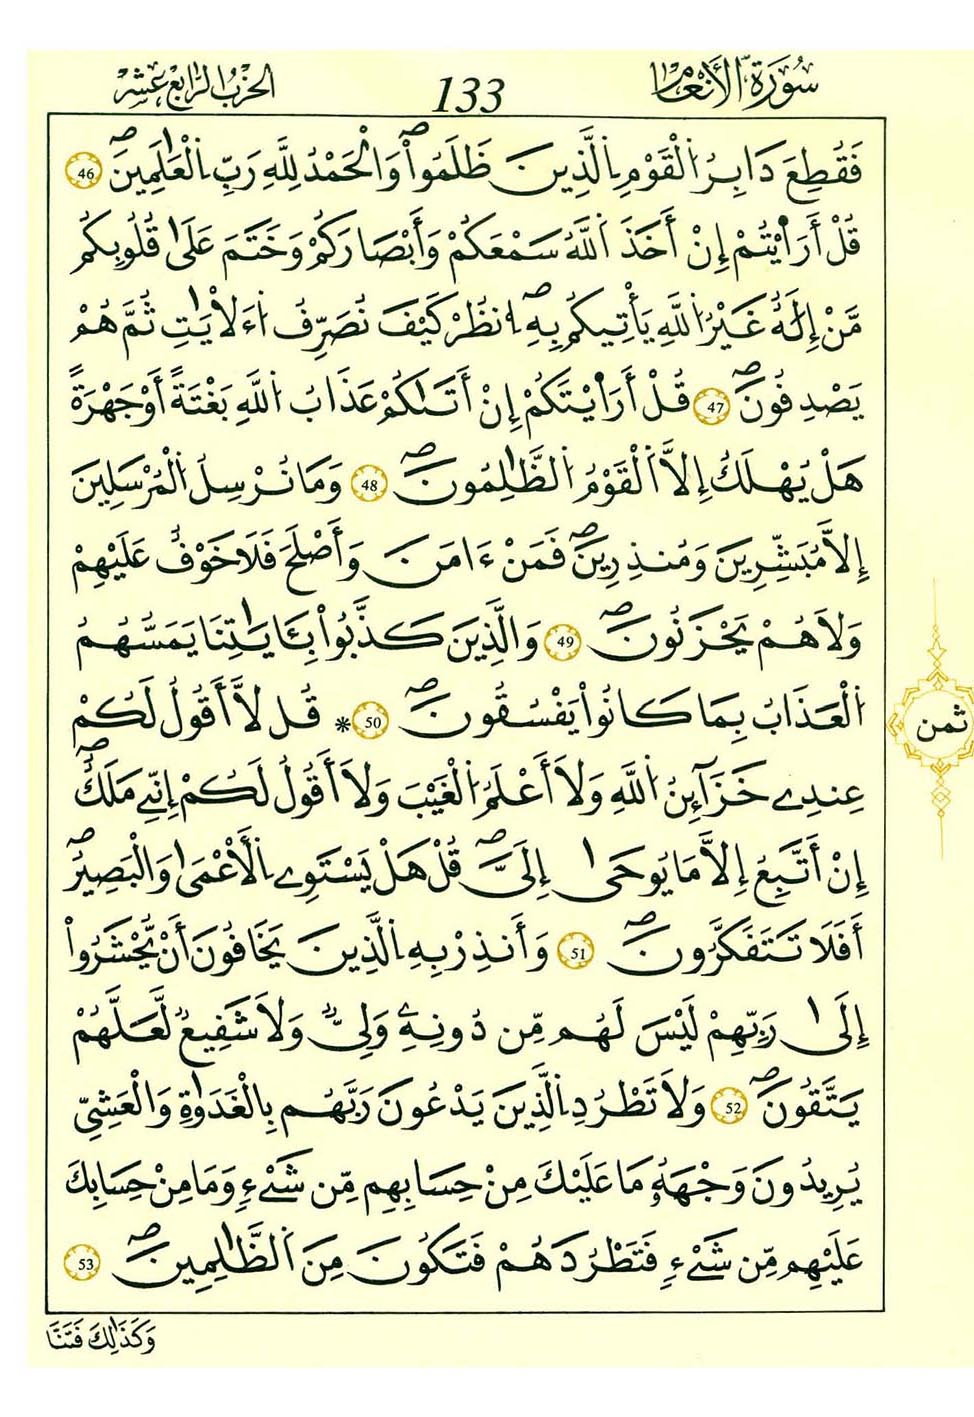 سُورَةُ الْأَنْعَامِ 133 الحِزْبُ الرَّابِعَ عَشَرَ
فَقُطِعَ دَابِرُ اُ۬لْقَوْمِ اِ۬لذِينَ ظَلَمُواْۖ وَالْحَمْدُ لِلهِ رَبِّ اِ۬لْعَٰلَمِينَۖ 46
قُلَ اَرَٰٓيْتُمُۥٓ إِنْ أَخَذَ اَ۬للَّهُ سَمْعَكُمْ وَأَبْصَٰرَكُمْ وَخَتَمَ عَلَىٰ قُلُوبِكُم
مَّنْ إِلَٰهٌ غَيْرُ اُ۬للَّهِ يَأْتِيكُم بِهِۖ اِ۟نظُرْ كَيْفَ نُصَرِّفُ اُ۬ءَلْأيَٰتِ ثُمَّ هُمْ
يَصْدِفُونَۖ 47 قُلْ أَرَٰيْتَكُمْ إِنْ أَتَىٰكُمْ عَذَابُ اُ۬للَّهِ بَغْتَةً أَوْ جَهْرَةً
هَلْ يُهْلَكُ إِلَّا اَ۬لْقَوْمُ اُ۬لظَّٰلِمُونَۖ 48 وَمَا نُرْسِلُ اُ۬لْمُرْسَلِينَ
إِلَّا مُبَشِّرِينَ وَمُنذِرِينَۖ فَمَنْ ءَامَنَ وَأَصْلَحَ فَلَا خَوْفٌ عَلَيْهِمْ
وَلَا هُمْ يَحْزَنُونَۖ 49 وَالَّذِينَ كَذَّبُواْ بِـَٔايَٰتِنَا يَمَسُّهُمُ
اُ۬لْعَذَابُ بِمَا كَانُواْ يَفْسُقُونَۖ 50 * قُل لَّا أَقُولُ لَكُمْ
عِندِے خَزَآئِنُ اُ۬للَّهِ وَلَا أَعْلَمُ اُ۬لْغَيْبَ وَلَا أَقُولُ لَكُمْ إِنِّے مَلَكٌۖ
إِنْ أَتَّبِعُ إِلَّا مَا يُوحَىٰ إِلَيَّۖ قُلْ هَلْ يَسْتَوِے اِ۬لْأَعْمَىٰ وَالْبَصِيرُۖ
أَفَلَا تَتَفَكَّرُونَۖ 51 وَأَنذِرْ بِهِ اِ۬لَّذِينَ يَخَافُونَ أَنْ يُّحْشَرُواْ
إِلَىٰ رَبِّهِمْ لَيْسَ لَهُم مِّن دُونِهِۦ وَلِيٌّ وَلَا شَفِيعٌ لَّعَلَّهُمْ
يَتَّقُونَۖ 52 وَلَا تَطْرُدِ اِ۬لَّذِينَ يَدْعُونَ رَبَّهُم بِالْغَدَوٰةِ وَالْعَشِيِّ
يُرِيدُونَ وَجْهَهُۥ مَا عَلَيْكَ مِنْ حِسَابِهِم مِّن شَےْءٍ وَمَا مِنْ حِسَابِكَ
عَلَيْهِم مِّن شَےْءٍ فَتَطْرُدَهُمْ فَتَكُونَ مِنَ اَ۬لظَّٰلِمِينَۖ 53
وَكَذَٰلِكَ فَتَنَّا
ثمن